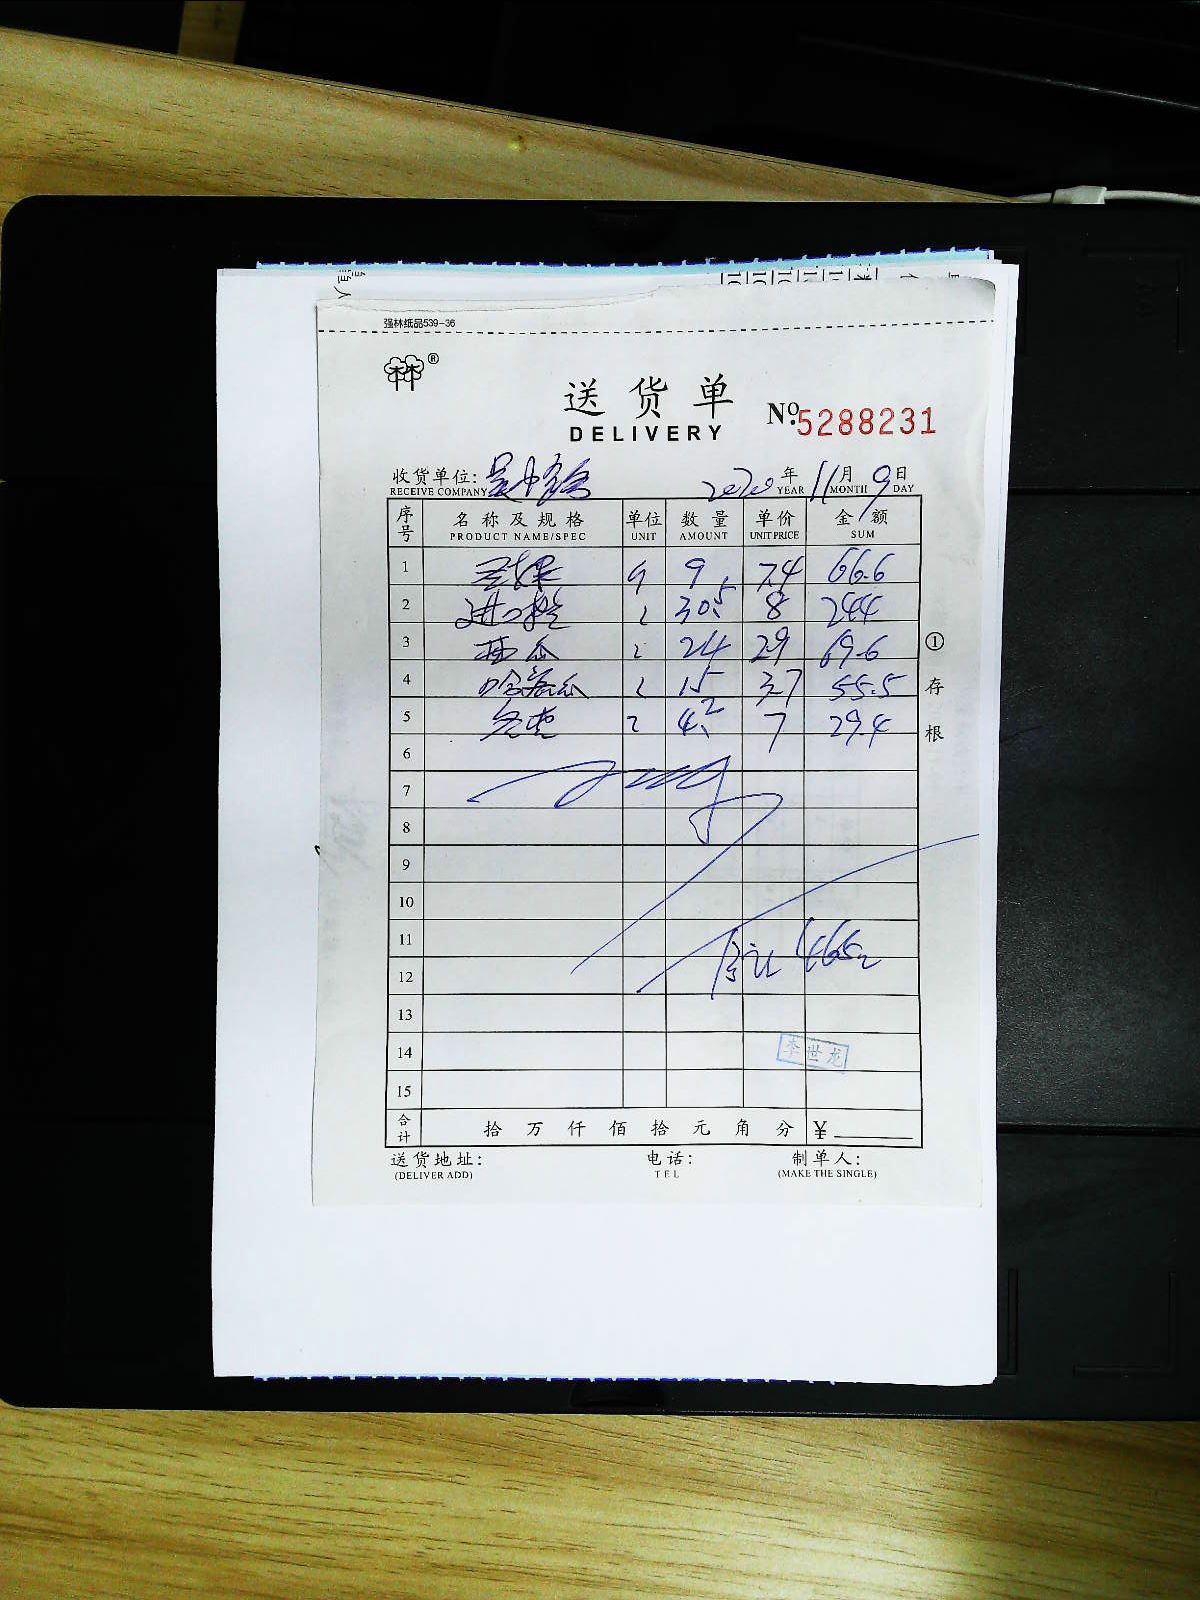 强林纸品539-36
林®
送货单
DELIVERY
No.5288231
收货单位: 2020年11月9日
RECEIVE COMPANY YEAR MONTH DAY
序号 名称及规格 单位 数量 单价 金额
PRODUCT NAME/SPEC UNIT AMOUNT UNIT PRICE SUM
1 9 7.4 66.6
2 进口 30.5 8 244
3 西瓜 24 2.9 69.6
4 哈密瓜 15 3.7 55.5
5 冬枣 4.2 7 29.4
6
7
8
9
10
11
12 合计 465.2
13
14 李世龙
15
合计 拾 万 仟 佰 拾 元 角 分 ¥
送货地址: 电话: 制单人:
(DELIVER ADD) TEL (MAKE THE SINGLE)
①存根